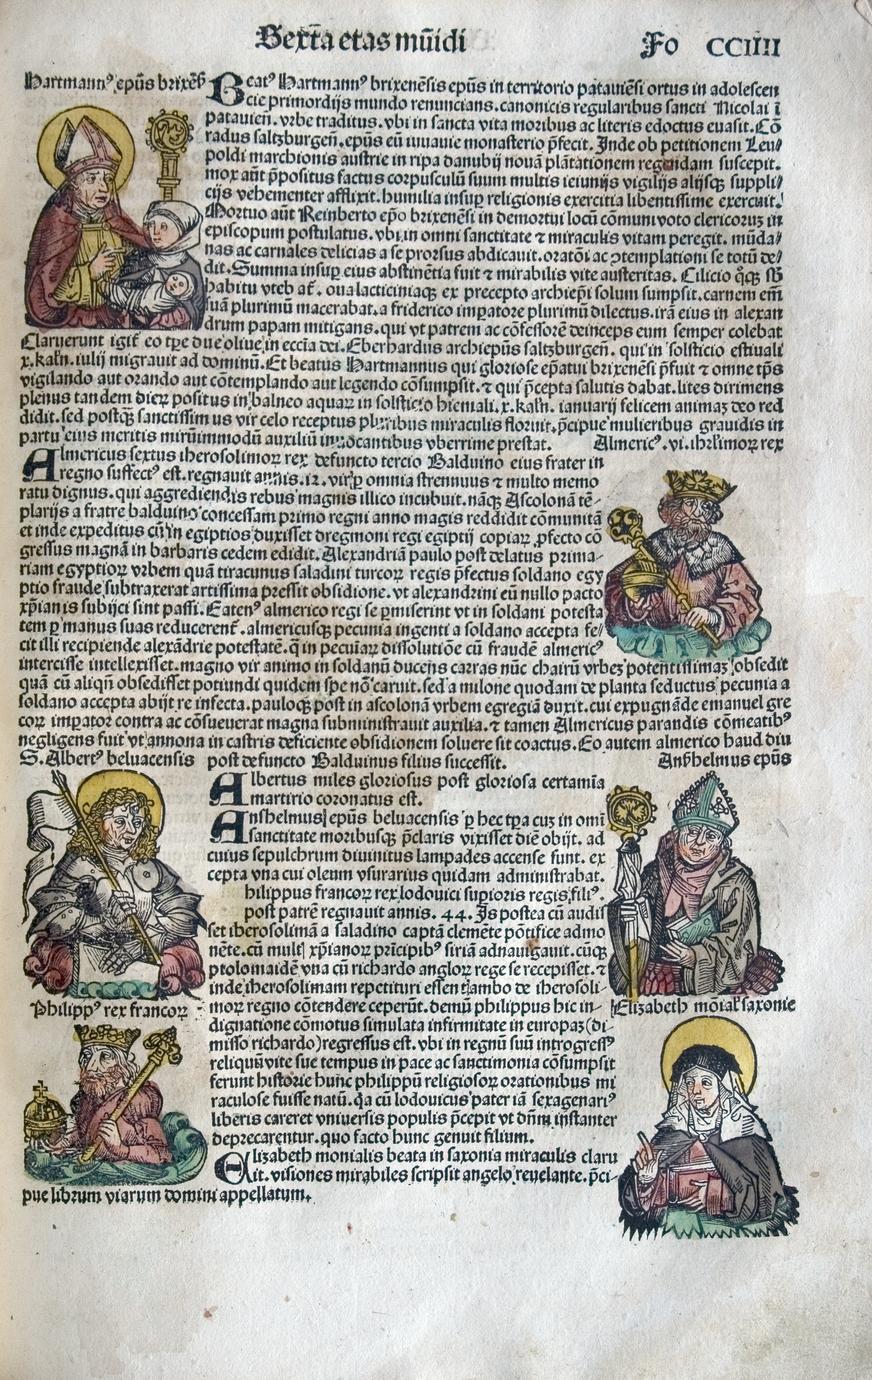 Sexta etas mūdi
Fo CCIIII
Hartmannꝰ epūs brixēs̄
Beatꝰ Hartmannꝰ brixenēsis epūs in territorio patauiēsi ortus in adolescen
cie primordijs mundo renuncians. canonicis regularibus sancti Nicolai ī
patauien̄. vrbe traditus. vbi in sancta vita moribus ac literis edoctus euasit. Cō
radus saltzburgen̄. epūs eū iuuauie monasterio p̄fecit. Inde ob petitionem Leu/
poldi marchionis austrie in ripa danubij nouā plātationem regendam suscepit.
mox aūt p̄positus factus corpusculū suum multis ieiunijs vigilijs alijsqꝫ suppli/
cijs vehementer afflixit. humilia insuꝑ religionis exercitia libentissime exercuit.
Mortuo aūt Reinberto ep̄o brixenēsi in demortui locū cōmuni voto clericorum in
episcopum postulatus. vbi in omni sanctitate ⁊ miraculis vitam peregit. mūda/
nas ac carnales delicias a se prorsus abdicauit. oratōi ac ꝯtemplationi se totū de/
dit. Summa insuꝑ eius abstinētia fuit ⁊ mirabilis vite austeritas. Cilicio q̊qꝫ sb̄
habitu vteb at̄. oua lacticiniaqꝫ ex precepto archiep̄i solum sumpsit. carnem em̄
suā plurimū macerabat. a friderico imꝑatore plurimū dilectus. irā eius in alexan
drum papam mitigans. qui vt patrem ac cōfessorē deinceps eum semper colebat
Claruerunt igit̄ eo tꝑe due oliue in eccīa dei. Eberhardus archiepūs saltzburgen̄. qui in solsticio estiuali
x. kal̄n. iulij migrauit ad dominū. Et beatus Hartmannus qui gloriose ep̄atui brixenēsi p̄fuit ⁊ omne tp̄s
vigilando aut orando aut cōtemplando aut legendo cōsumpsit. ⁊ qui p̄cepta salutis dabat. lites dirimens
plenus tandem dieꝝ positus in balneo aquaꝝ in solsticio hiemali. x. kal̄n. ianuarij felicem animam deo red
didit. sed postqꝫ sanctissim us vir celo receptus pluribus miraculis floruit. p̄cipue mulieribus grauidis in
partu eius meritis mirūimmodū auxiliū inuocantibus vberrime prestat.
Almericꝰ. vi. ihrl̄imoꝝ rex
Almericus sextus iherosolimoꝝ rex defuncto tercio Balduino eius frater in
regno suffectꝰ est. regnauit annis. 12. vir ꝑ omnia strennuus ⁊ multo memo
ratu dignus. qui aggrediendis rebus magnis illico incubuit. nāqꝫ Ascolonā tē-
plarijs a fratre balduino concessam primo regni anno magis reddidit cōmunitā
et inde expeditus cū in egiptios duxisset dregmoni regi egiptij copiaꝝ ꝓfecto cō
gressus magnā in barbaris cedem edidit. Alexandriā paulo post delatus prima-
riam egyptioꝝ vrbem quā tiracunus saladini turcoꝝ regis p̄fectus soldano egy
ptio fraude subtraxerat artissima pressit obsidione. vt alexandrini eū nullo pacto
xp̄ianis subijci sint passi. Eatenꝰ almerico regi se ꝑmiserint vt in soldani potesta
tem ꝑ manus suas reducerent̄. almericusqꝫ pecunia ingenti a soldano accepta fe/
cit illi recipiende alexādrie potestatē. q̄ in pecuniaꝝ dissolutiōe cū fraudē almericꝰ
intercisse intellexisset. magno vir animo in soldanū ducens carras nūc chairū vrbem potentissimam obsedit
quā cū aliqn̄ obsedisset potiundi quidem spe nō caruit. sed a milone quodam de planta seductus pecunia a
soldano accepta abijt re infecta. pauloqꝫ post in ascolonā vrbem egregiā duxit. cui expugnāde emanuel gre
coꝝ imꝑator contra ac cōsueuerat magna subministrauit auxilia. ⁊ tamen Almericus parandis cōmeatibꝰ
negligens fuit vt annona in castris deficiente obsidionem soluere sit coactus. Eo autem almerico haud diu
post defuncto Balduinus filius successit.
S. Albertꝰ beluacensis
Anßhelmus epūs
Albertus miles gloriosus post gloriosa certamīa
martirio coronatus est.
Anshelmus epūs beluacensis ꝑ hec tꝑa cum in omī
sanctitate moribusqꝫ p̄claris vixisset diē obijt. ad
cuius sepulchrum diuinitus lampades accense sunt. ex
cepta vna cui oleum vsurarius quidam administrabat.
hilippus francoꝝ rex lodouici suꝑioris regis filiꝰ.
post patrē regnauit annis. 44. Is postea cū audis
set iherosolimā a saladino captā clemēte pōtifice admo
nēte. cū multꝭ xp̄ianoꝝ prīcipibꝰ siriā adnauigauit. cūqꝫ
ptolomaidē vna cū richardo angloꝝ rege se recepisset. ⁊
inde iherosolimam repetituri essent ambo de iherosoli-
moꝝ regno cōtendere ceperūt. demū philippus hic in-
dignatione cōmotus simulata infirmitate in europam (di-
misso richardo) regressus est. vbi in regnū suū introgressꝰ
reliquū vite sue tempus in pace ac sanctimonia cōsumpsit
ferunt historie hunc philippū religiosoꝝ orationibus mi
raculose fuisse natū. Qa cū lodouicus pater iā sexagenariꝰ
liberis careret vniuersis populis p̄cepit vt dn̄m instanter
deprecarentur. quo facto hunc genuit filium.
Philippꝰ rex francoꝝ
Elizabeth mōial̄ saxonie
Elizabeth monialis beata in saxonia miraculis claru
it. visiones mirabiles scripsit angelo reuelante. p̄ci-
pue librum viarum domini appellatum.